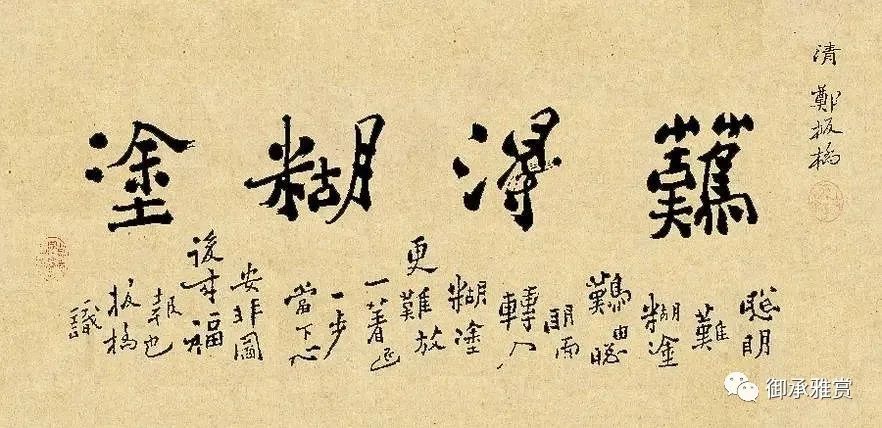 清 鄭板橋
難得糊塗
聰明
難
糊塗
難由聰
明而
轉入
糊塗
更難放
一著退
一步
當下心
安非圖
後來福
報也
板橋
識
御承雅赏